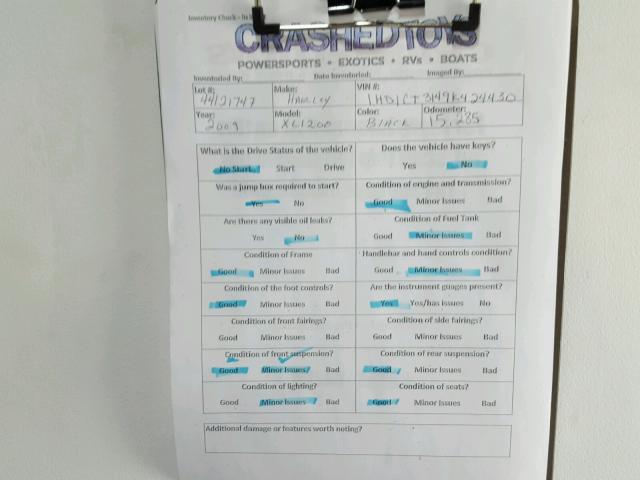 Inventory Check - In
CRASHEDTOYS
POWERSPORTS • EXOTICS • RVs • BOATS
Inventoried By: Date Inventoried: Imaged By:
Lot #: Make: VIN #:
44121747 HARLEY 1HD1CT3149K424430
Year: Model: Color: Odometer:
2009 XL1200 BLACK 15,285
What is the Drive Status of the vehicle? Does the vehicle have keys?
No Start Start Drive Yes No
Was a jump box required to start? Condition of engine and transmission?
Yes No Good Minor Issues Bad
Are there any visible oil leaks? Condition of Fuel Tank
Yes No Good Minor Issues Bad
Condition of Frame Handlebar and hand controls condition?
Good Minor Issues Bad Good Minor Issues Bad
Condition of the foot controls? Are the instrument guages present?
Good Minor Issues Bad Yes Yes/has issues No
Condition of front fairings? Condition of side fairings?
Good Minor Issues Bad Good Minor Issues Bad
Condition of front suspension? Condition of rear suspension?
Good Minor Issues Bad Good Minor Issues Bad
Condition of lighting? Condition of seats?
Good Minor Issues Bad Good Minor Issues Bad
Additional damage or features worth noting?